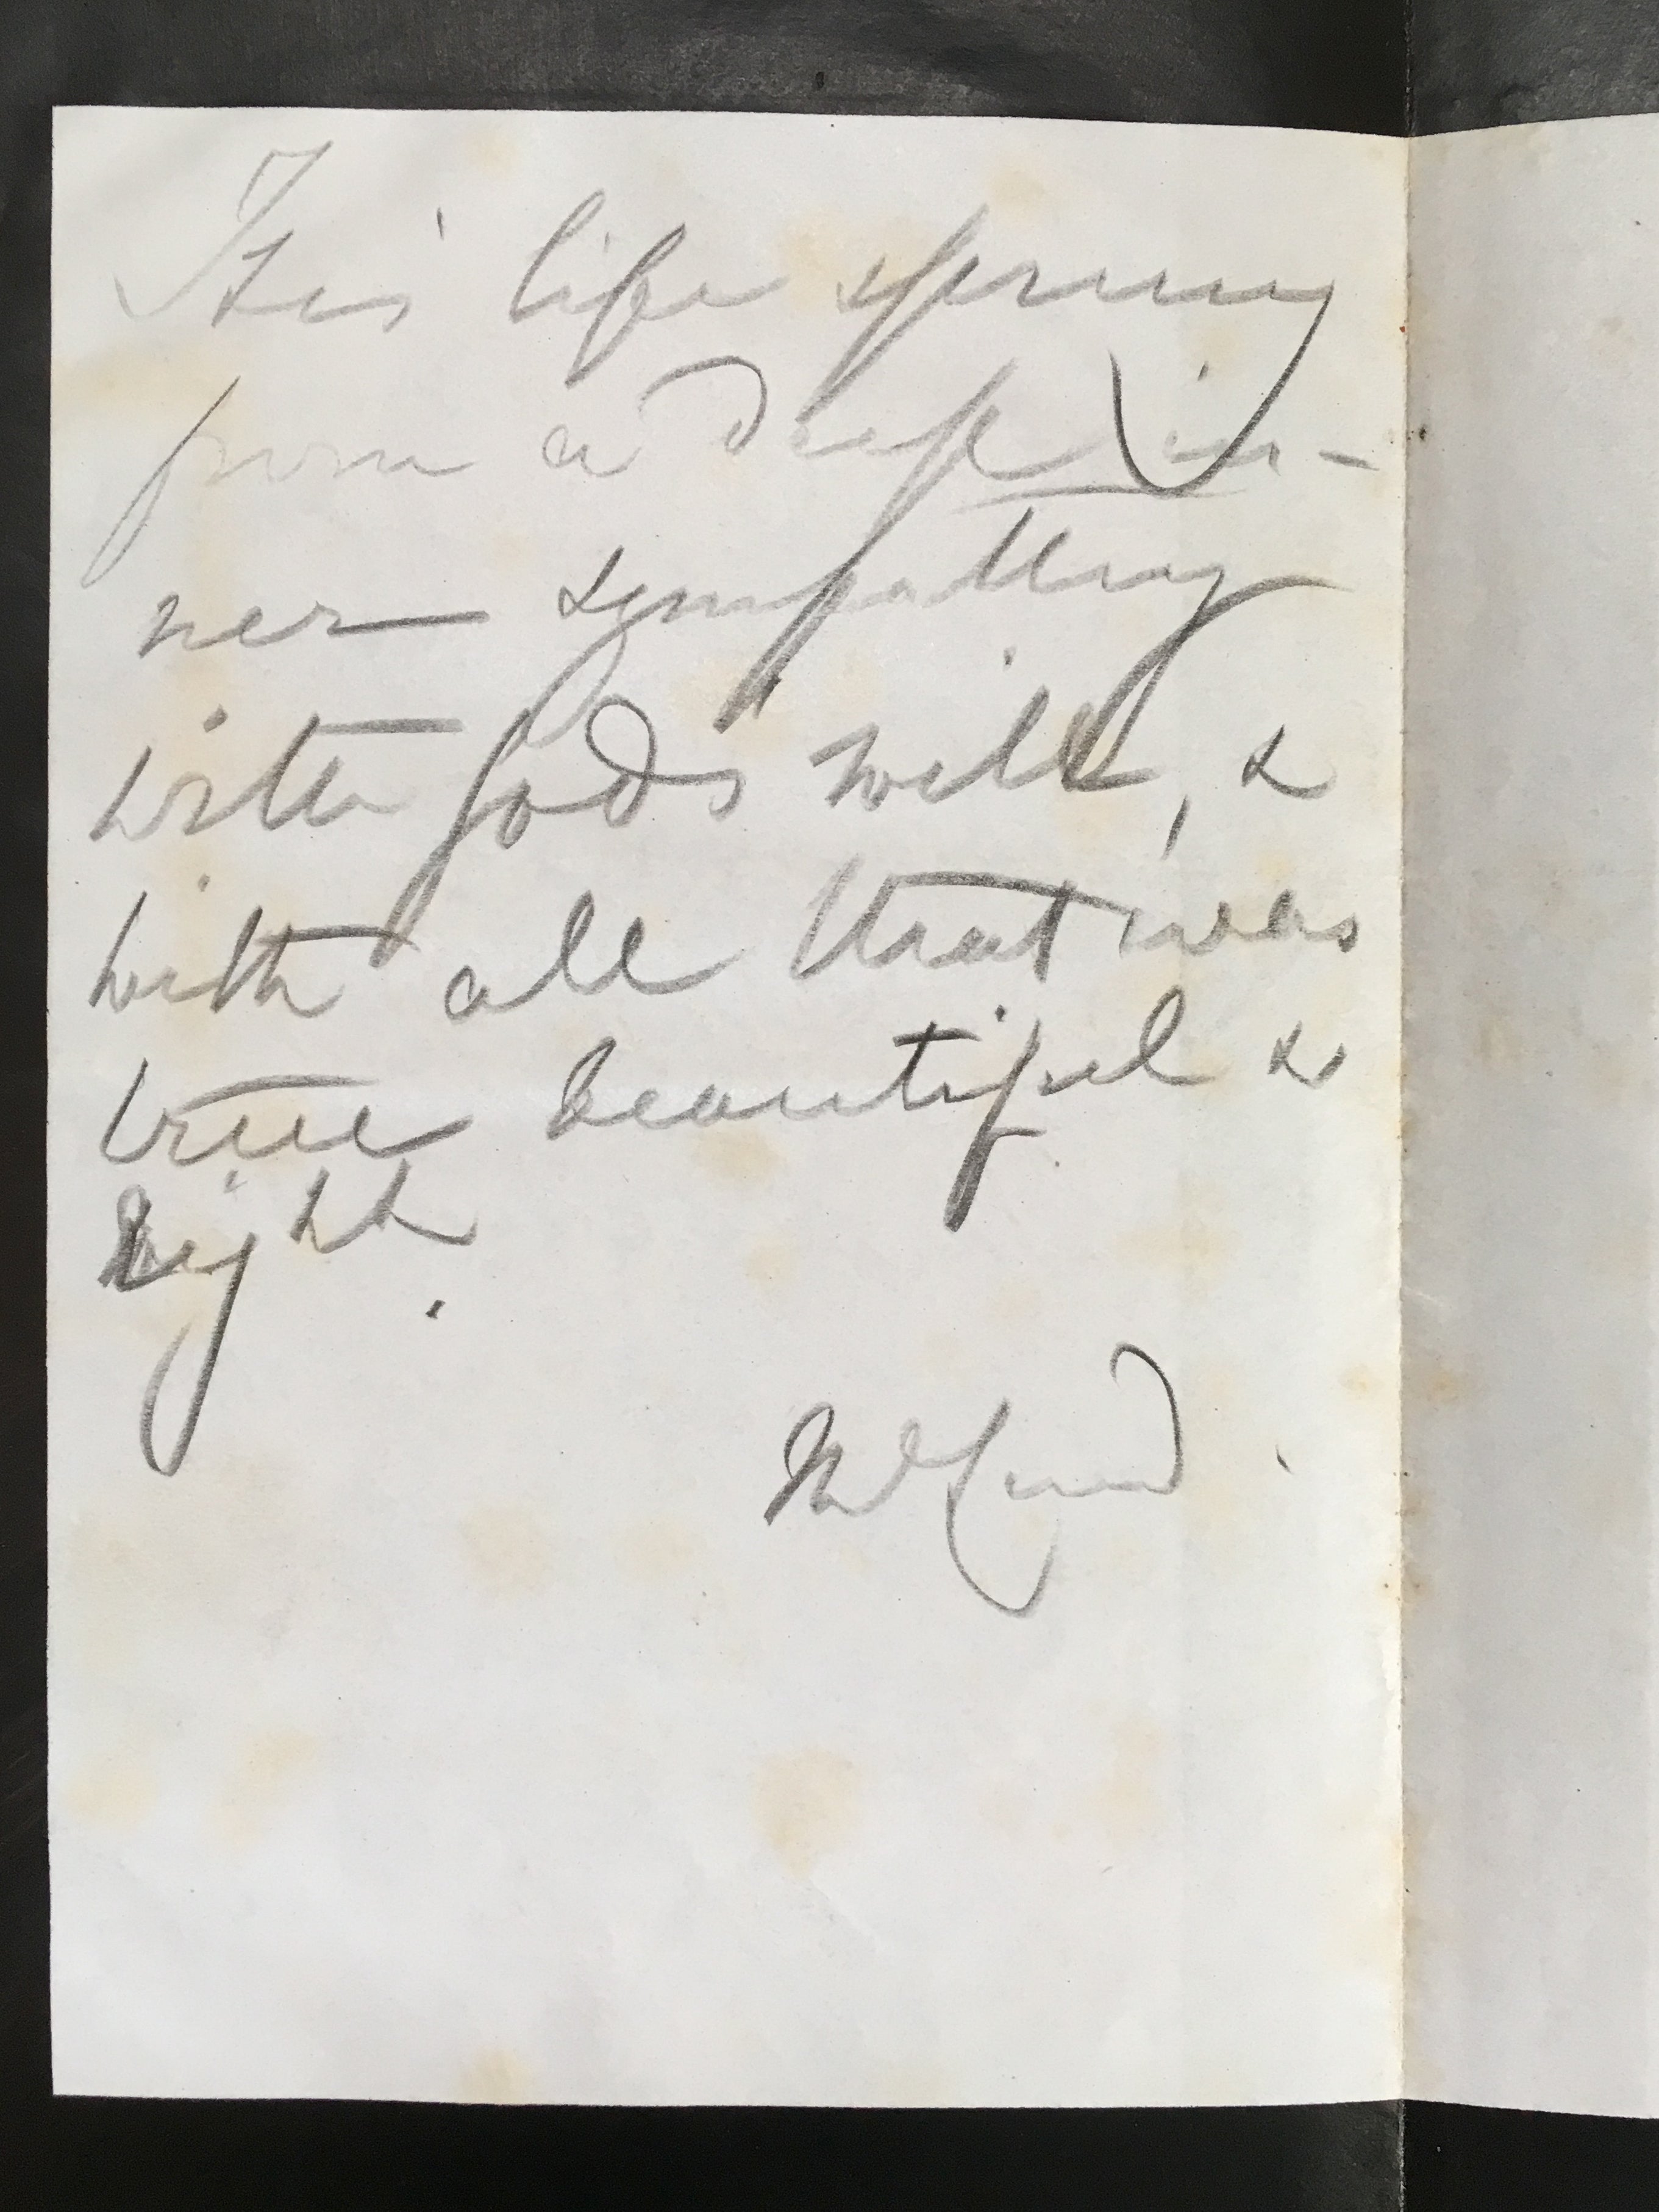 His life sprung
from a deep in-
ner sympathy
with Gods will, &
with all that was
true beautiful &
right.